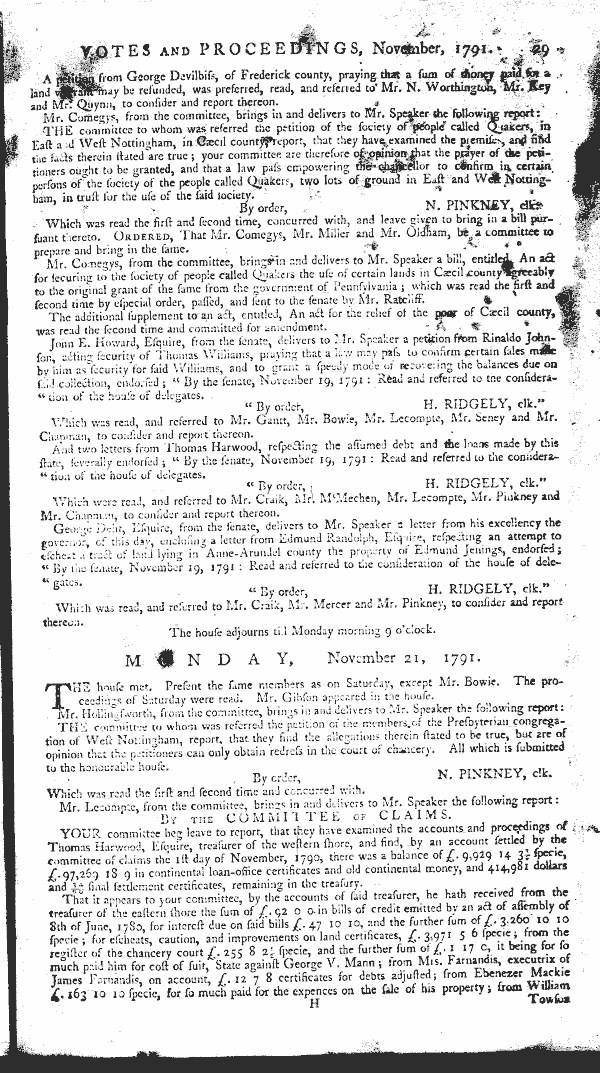 VOTES AND PROCEEDINGS, November, 1791. 29
A petition from George Devilbiſs, of Frederick county, praying that a ſum of money paid for a
land warrant may be refunded, was preferred, read, and referred to Mr. N. Worthington, Mr. Key
and Mr. Quynn, to conſider and report thereon.
Mr. Comegys, from the committee, brings in and delivers to Mr. Speaker the following report:
THE committee to whom was referred the petition of the ſociety of people called Quakers, in
Eaſt and Weſt Nottingham, in Cæcil county, report, that they have examined the premiſes, and find
the facts therein ſtated are true; your committee are therefore of opinion that the prayer of the peti-
tioners ought to be granted, and that a law paſs empowering the chancellor to confirm in certain
perſons of the ſociety of the people called Quakers, two lots of ground in Eaſt and Weſt Notting-
ham, in truſt for the uſe of the ſaid ſociety.
By order, N. PINKNEY, clk.
Which was read the firſt and ſecond time, concurred with, and leave given to bring in a bill pur-
ſuant thereto. ORDERED, That Mr. Comegys, Mr. Miller and Mr. Oldham, be a committee to
prepare and bring in the ſame.
Mr. Comegys, from the committee, brings in and delivers to Mr. Speaker a bill, entitled, An act
for ſecuring to the ſociety of people called Quakers the uſe of certain lands in Cæcil county agreeably
to the original grant of the ſame from the government of Pennſylvania; which was read the firſt and
ſecond time by eſpecial order, paſſed, and ſent to the ſenate by Mr. Ratcliff.
The additional ſupplement to an act, entitled, An act for the relief of the poor of Cæcil county,
was read the ſecond time and committed for amendment.
John E. Howard, Eſquire, from the ſenate, delivers to Mr. Speaker a petition from Rinaldo John-
ſon, acting ſecurity of Thomas Williams, praying that a law may paſs to confirm certain ſales made
by him as ſecurity for ſaid Williams, and to grant a ſpeedy mode of recovering the balances due on
ſaid collection, endorſed; " By the ſenate, November 19, 1791: Read and referred to the conſidera-
" tion of the houſe of delegates.
" By order, H. RIDGELY, clk."
Which was read, and referred to Mr. Gantt, Mr. Bowie, Mr. Lecompte, Mr. Seney and Mr.
Chapman, to conſider and report thereon.
And two letters from Thomas Harwood, reſpecting the aſſumed debt and the loans made by this
ſtate, ſeverally endorſed; " By the ſenate, November 19, 1791: Read and referred to the conſidera-
" tion of the houſe of delegates.
" By order, H. RIDGELY, clk."
Which were read, and referred to Mr. Craik, Mr. M'Mechen, Mr. Lecompte, Mr. Pinkney and
Mr. Chapman, to conſider and report thereon.
George Dent, Eſquire, from the ſenate, delivers to Mr. Speaker a letter from his excellency the
governor, of this day, encloſing a letter from Edmund Randolph, Eſquire, reſpecting an attempt to
eſcheat a tract of land lying in Anne-Arundel county the property of Edmund Jenings, endorſed;
" By the ſenate, November 19, 1791: Read and referred to the conſideration of the houſe of dele-
" gates.
" By order, H. RIDGELY, clk."
Which was read, and referred to Mr. Craik, Mr. Mercer and Mr. Pinkney, to conſider and report
thereon.
The houſe adjourns till Monday morning 9 o'clock.
MONDAY, November 21, 1791.
THE houſe met. Preſent the ſame members as on Saturday, except Mr. Bowie. The pro-
ceedings of Saturday were read. Mr. Gibſon appeared in the houſe.
Mr. Hollingſworth, from the committee, brings in and delivers to Mr. Speaker the following report:
THE committee to whom was referred the petition of the members of the Preſbyterian congrega-
tion of Weſt Nottingham, report, that they find the allegations therein ſtated to be true, but are of
opinion that the petitioners can only obtain redreſs in the court of chancery. All which is ſubmitted
to the honourable houſe.
By order, N. PINKNEY, clk.
Which was read the firſt and ſecond time and concurred with.
Mr. Lecompte, from the committee, brings in and delivers to Mr. Speaker the following report:
BY THE COMMITTEE OF CLAIMS.
YOUR committee beg leave to report, that they have examined the accounts and proceedings of
Thomas Harwood, Eſquire, treaſurer of the weſtern ſhore, and find, by an account ſettled by the
committee of claims the 1ſt day of November, 1790, there was a balance of £. 9,929 14 3½ ſpecie,
£. 97,269 18 9 in continental loan-office certificates and old continental money, and 414,981 dollars
and final ſettlement certificates, remaining in the treaſury.
That it appears to your committee, by the accounts of ſaid treaſurer, he hath received from the
treaſurer of the eaſtern ſhore the ſum of £. 92 0 0 in bills of credit emitted by an act of aſſembly of
8th of June, 1780, for intereſt due on ſaid bills £. 47 10 10, and the further ſum of £. 3,260 10 10
ſpecie; for eſcheats, caution, and improvements on land certificates, £. 3,971 5 6 ſpecie; from the
regiſter of the chancery court £. 255 8 2½ ſpecie, and the further ſum of £. 1 17 0, it being for ſo
much paid him for coſt of ſuit, State againſt George V. Mann; from Mrs. Farnandis, executrix of
James Farnandis, on account, £. 12 7 8 certificates for debts adjuſted; from Ebenezer Mackie
£. 163 10 10 ſpecie, for ſo much paid for the expences on the ſale of his property; from William
H Towſon